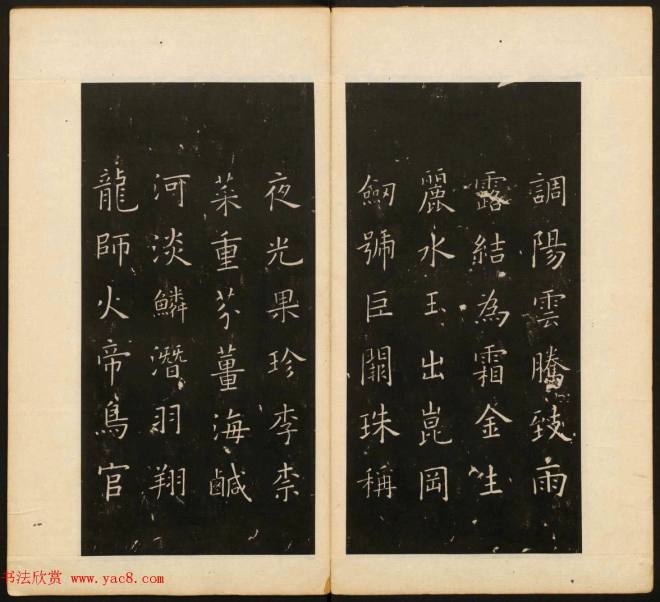 調陽雲騰致雨
露結為霜金生
麗水玉出崑岡
劒號巨闕珠稱
夜光果珍李柰
菜重芥薑海鹹
河淡鱗潛羽翔
龍師火帝鳥官
书法欣赏 www.yac8.com